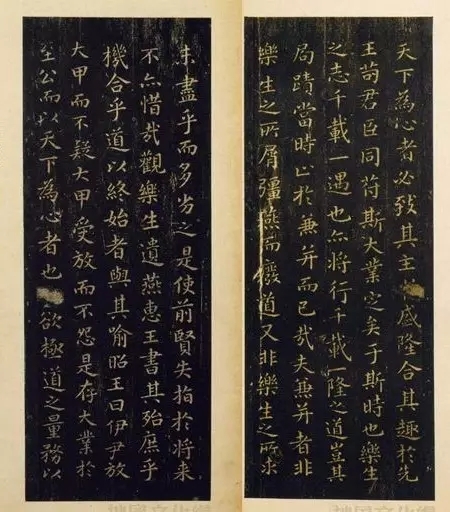 天下為心者必致其主盛隆合其趣於先
王苟君臣同苻斯大業定矣于斯時也樂生
之志千載一遇也亦將行千載一隆之道豈其
局蹟當時止於兼并而已哉夫兼并者非
樂生之所屑彊燕而廢道又非樂生之所求
未盡乎而多劣之是使前賢失指於將来
不亦惜哉觀樂生遺燕惠王書其殆庶乎
機合乎道以終始者與其喻昭王曰伊尹放
大甲而不疑大甲受放而不怨是存大業於
至公而以天下為心者也欲極道之量務以